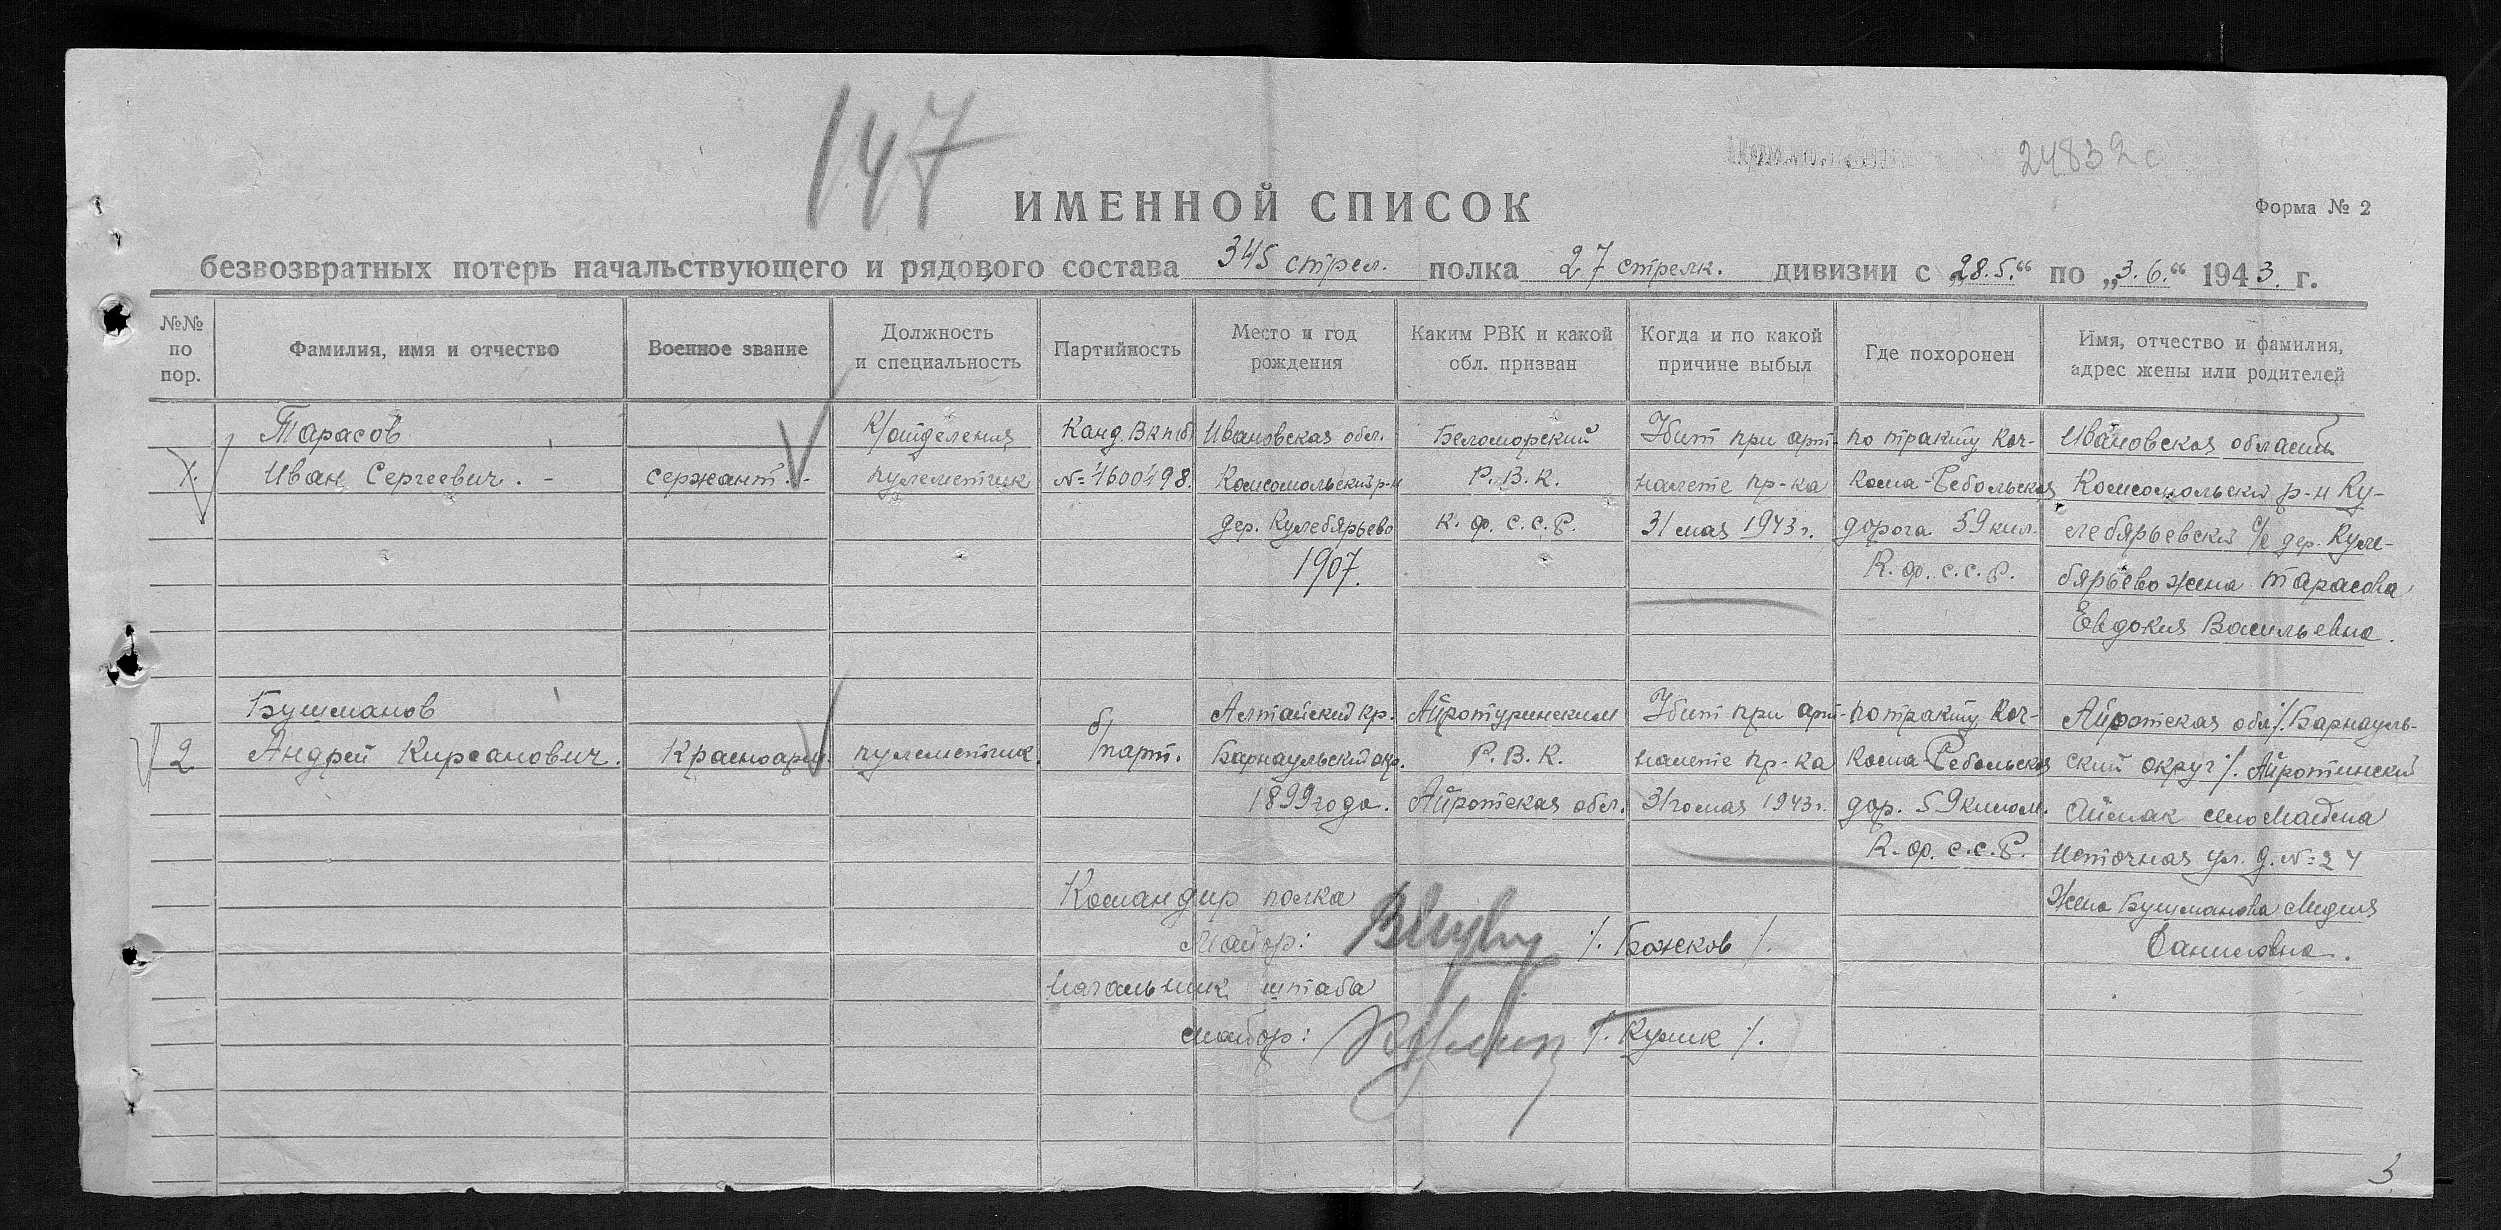 147
24832с
ИМЕННОЙ СПИСОК
Форма № 2
безвозвратных потерь начальствующего и рядового состава 345 стрел. полка 27 стрелк. дивизии с „28.5.“ по „3.6.“ 1943. г.
№№ по пор.
Фамилия, имя и отчество
Военное звание
Должность и специальность
Партийность
Место и год рождения
Каким РВК и какой обл. призван
Когда и по какой причине выбыл
Где похоронен
Имя, отчество и фамилия, адрес жены или родителей
1.
Тарасов
Иван Сергеевич. -
сержант. -
К/отделения
пулеметчик
Канд. Вкп(б)
№ 4600498.
Ивановская обл.
Комсомольский р-н
дер. Кулебярьево
1907.
Беломорский
Р. В. К.
К. ф. с. с. Р.
Убит при арт-
налете пр-ка
31 мая 1943 г.
по тракту Коч-
кома-Ребольская
дорога 59 кил.
К. ф. с. с. Р.
Ивановская область
Комсомольский р-н Ку-
лебярьевский с/с дер. Куле-
бярьево жена Тарасова
Евдокия Васильевна.
2
Бушманов
Андрей Кирсанович.
Красноарм.
пулеметчик.
б/парт.
Алтайский кр.
Барнаульский окр.
1899 года.
Айротуринским
Р. В. К.
Айротская обл.
Убит при арт-
налете пр-ка
31го мая 1943 г.
по тракту Коч-
кома-Ребольская
дор. 59 килом.
К. ф. с. с. Р.
Айротская обл /. Барнауль-
ский округ /. Айротинский
Аймак село Майма
Источная ул. д. № 24
Жена Бушманова Лидия
Даниловна.
Командир полка
Майор: /. Божков /.
Начальник штаба
майор: /. Кулик /.
3